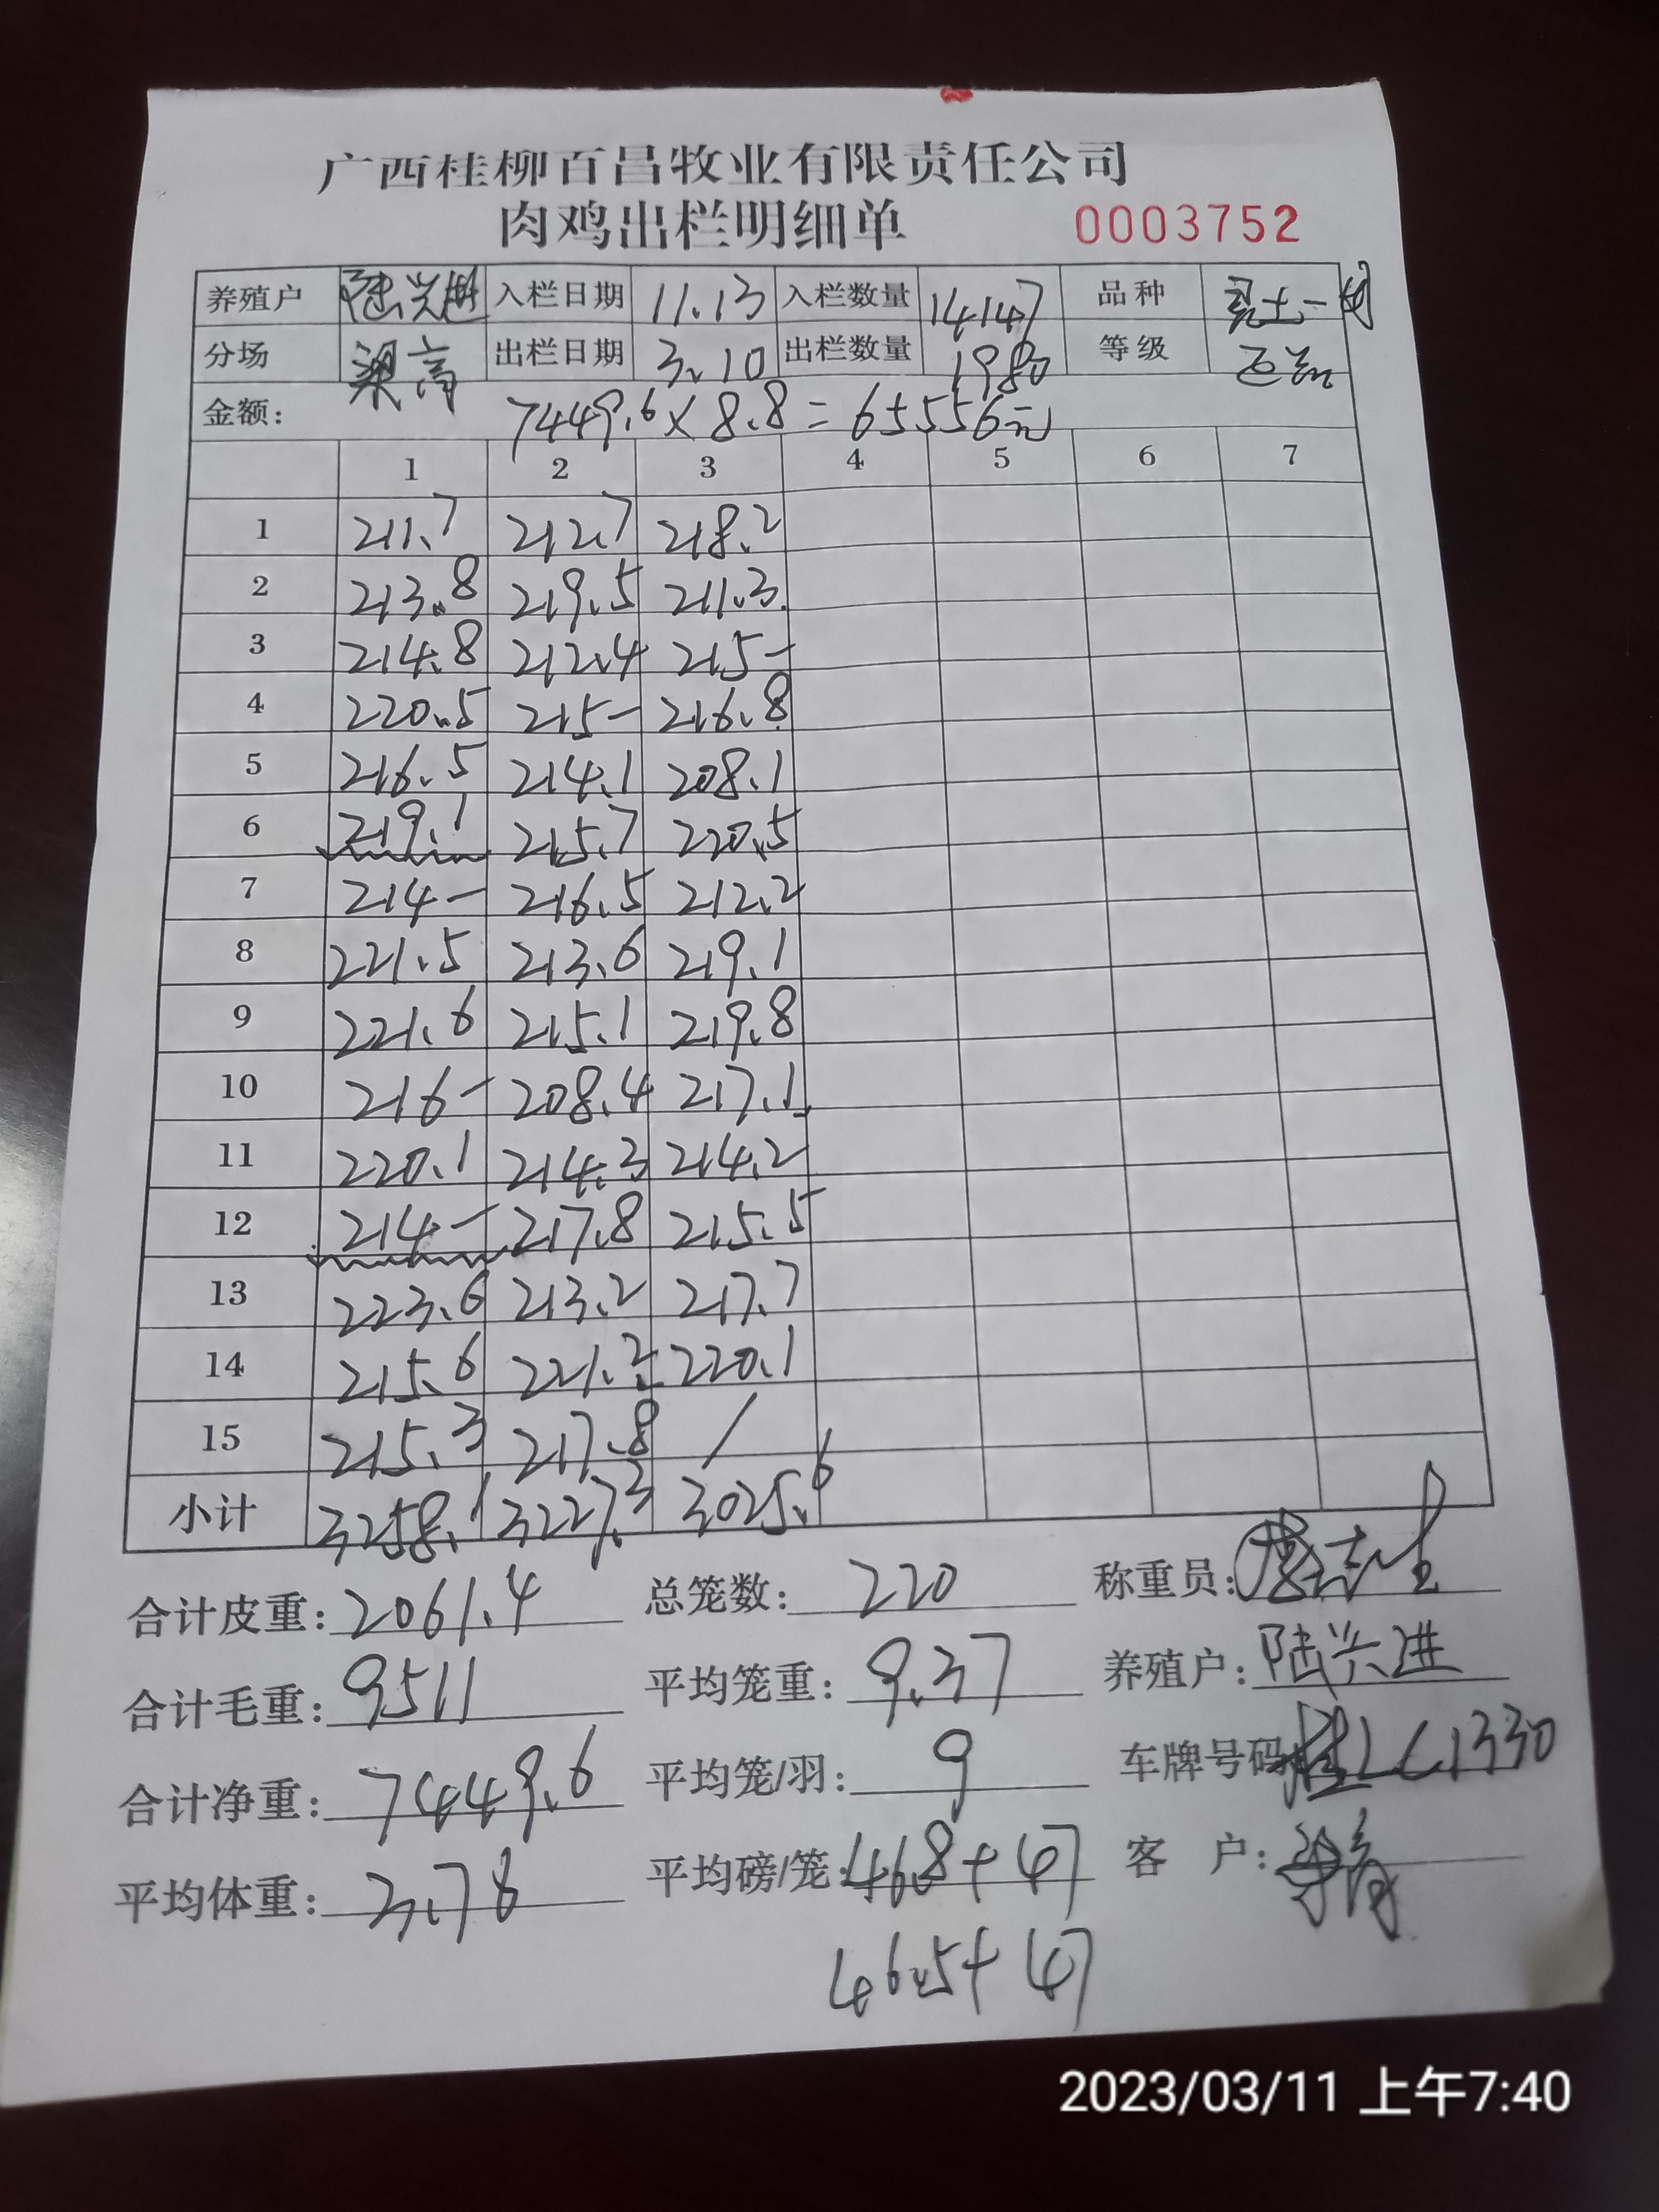 广西桂柳百昌牧业有限责任公司
肉鸡出栏明细单 0003752
养殖户 陆兴进 入栏日期 11.13 入栏数量 14147 品种 土一
分场 梁高 出栏日期 3.10 出栏数量 1980 等级
金额: 7449.6×8.8=65556元
1 2 3 4 5 6 7
1 211.7 212.7 218.2
2 213.8 219.5 211.3
3 214.8 212.4 215-
4 220.5 215- 216.8
5 216.5 214.1 208.1
6 219.1 215.7 220.5
7 214- 216.5 212.2
8 221.5 213.6 219.1
9 221.6 215.1 219.8
10 216- 208.4 217.1
11 220.1 214.3 214.2
12 214- 217.8 215.5
13 223.6 213.2 217.7
14 215.6 221.2 220.1
15 215.3 217.8 /
小计 3258.1 3227.3 3025.6
合计皮重: 2061.4 总笼数: 220 称重员:
合计毛重: 9511 平均笼重: 9.37 养殖户: 陆兴进
合计净重: 7449.6 平均笼/羽: 9 车牌号码: 桂LC1330
平均体重: 3.76 平均磅/笼: 46.8+47 客户:
46.5+47
2023/03/11 上午7:40